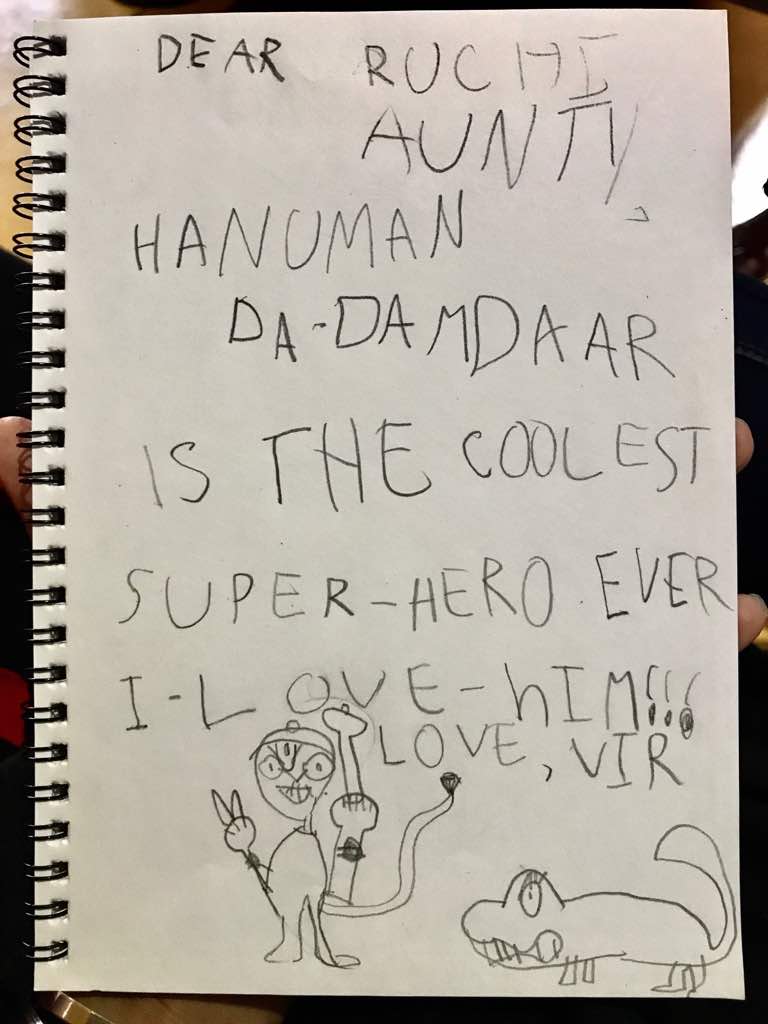 DEAR RUCHI
AUNTY,
HANUMAN
DA-DAMDAAR
IS THE COOLEST
SUPER-HERO EVER
I-LOVE-hIM!!!
LOVE, VIR